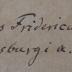 s Fridericu
sburgi a.